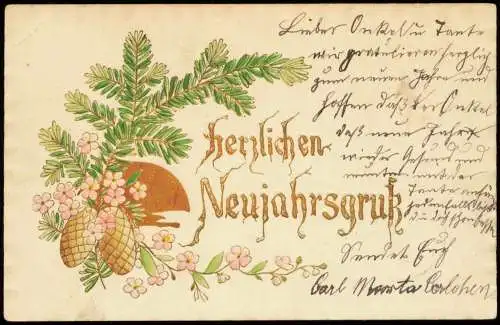 Lieber Onkel u Tante
wir gratulieren herzlich
zum neuen Jahre und
hoffen daß der Onkel
daß neue Jahr
wieder Gesund und
munter mit der
Tante
Sendet Euch
Carl Marta
Herzlichen
Neujahrsgruß